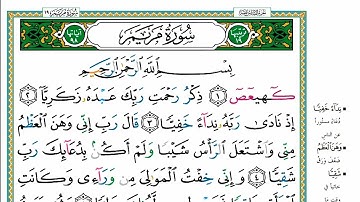 سُورَةُ مَرْيَمَ
بِسْمِ اللَّهِ الرَّحْمَٰنِ الرَّحِيمِ
كٓهيعٓصٓ ﴿١﴾ ذِكْرُ رَحْمَتِ رَبِّكَ عَبْدَهُ زَكَرِيَّآ ﴿٢﴾
إِذْ نَادَىٰ رَبَّهُ نِدَآءً خَفِيًّا ﴿٣﴾ قَالَ رَبِّ إِنِّي وَهَنَ الْعَظْمُ
مِنِّي وَاشْتَعَلَ الرَّأْسُ شَيْبًا وَلَمْ أَكُنۢ بِدُعَآئِكَ رَبِّ
شَقِيًّا ﴿٤﴾ وَإِنِّي خِفْتُ الْمَوَالِيَ مِن وَرَآءِي وَكَانَتِ
نِدَآءً خَفِيًّا
وَهَنَ الْعَظْمُ
شَقِيًّا